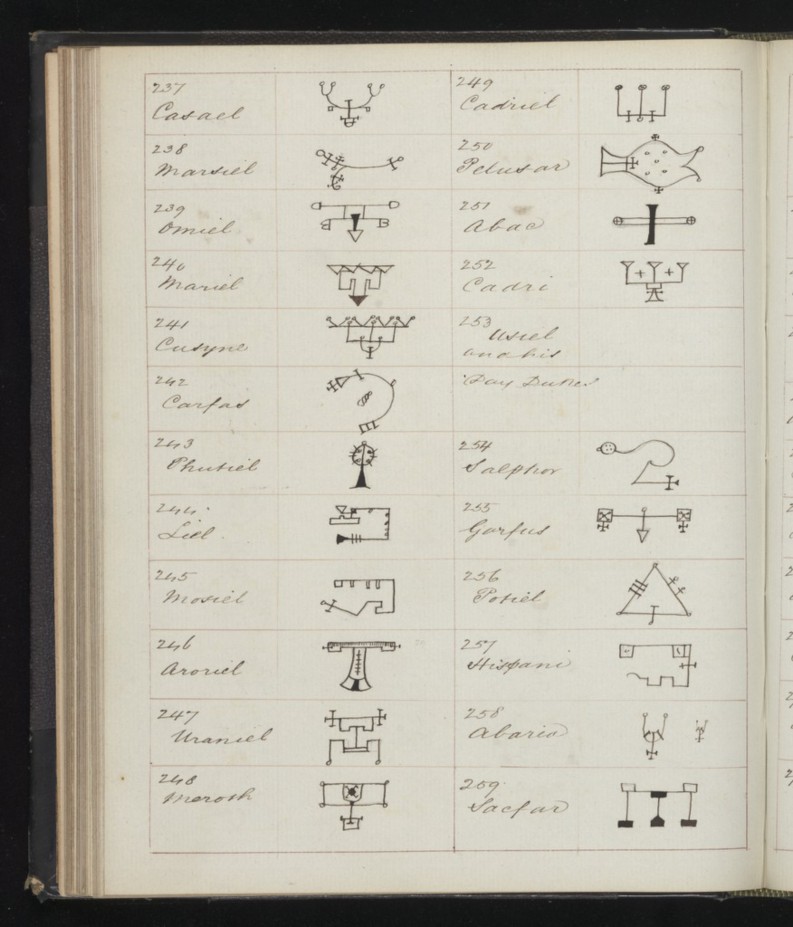 237
Casael
238
Marsiel
239
Omiel
240
Mariel
241
Cusyne
242
Carfas
243
Phutiel
244
Liel
245
Mosiel
246
Aroriel
247
Uraniel
248
Meroth
249
Cadriel
250
Pelusar
251
Abac
252
Cadri
253
Usiel
and his
Day Dukes
254
Salphor
255
Garfus
256
Potiel
257
Hispani
258
Abaria
259
Sacfar